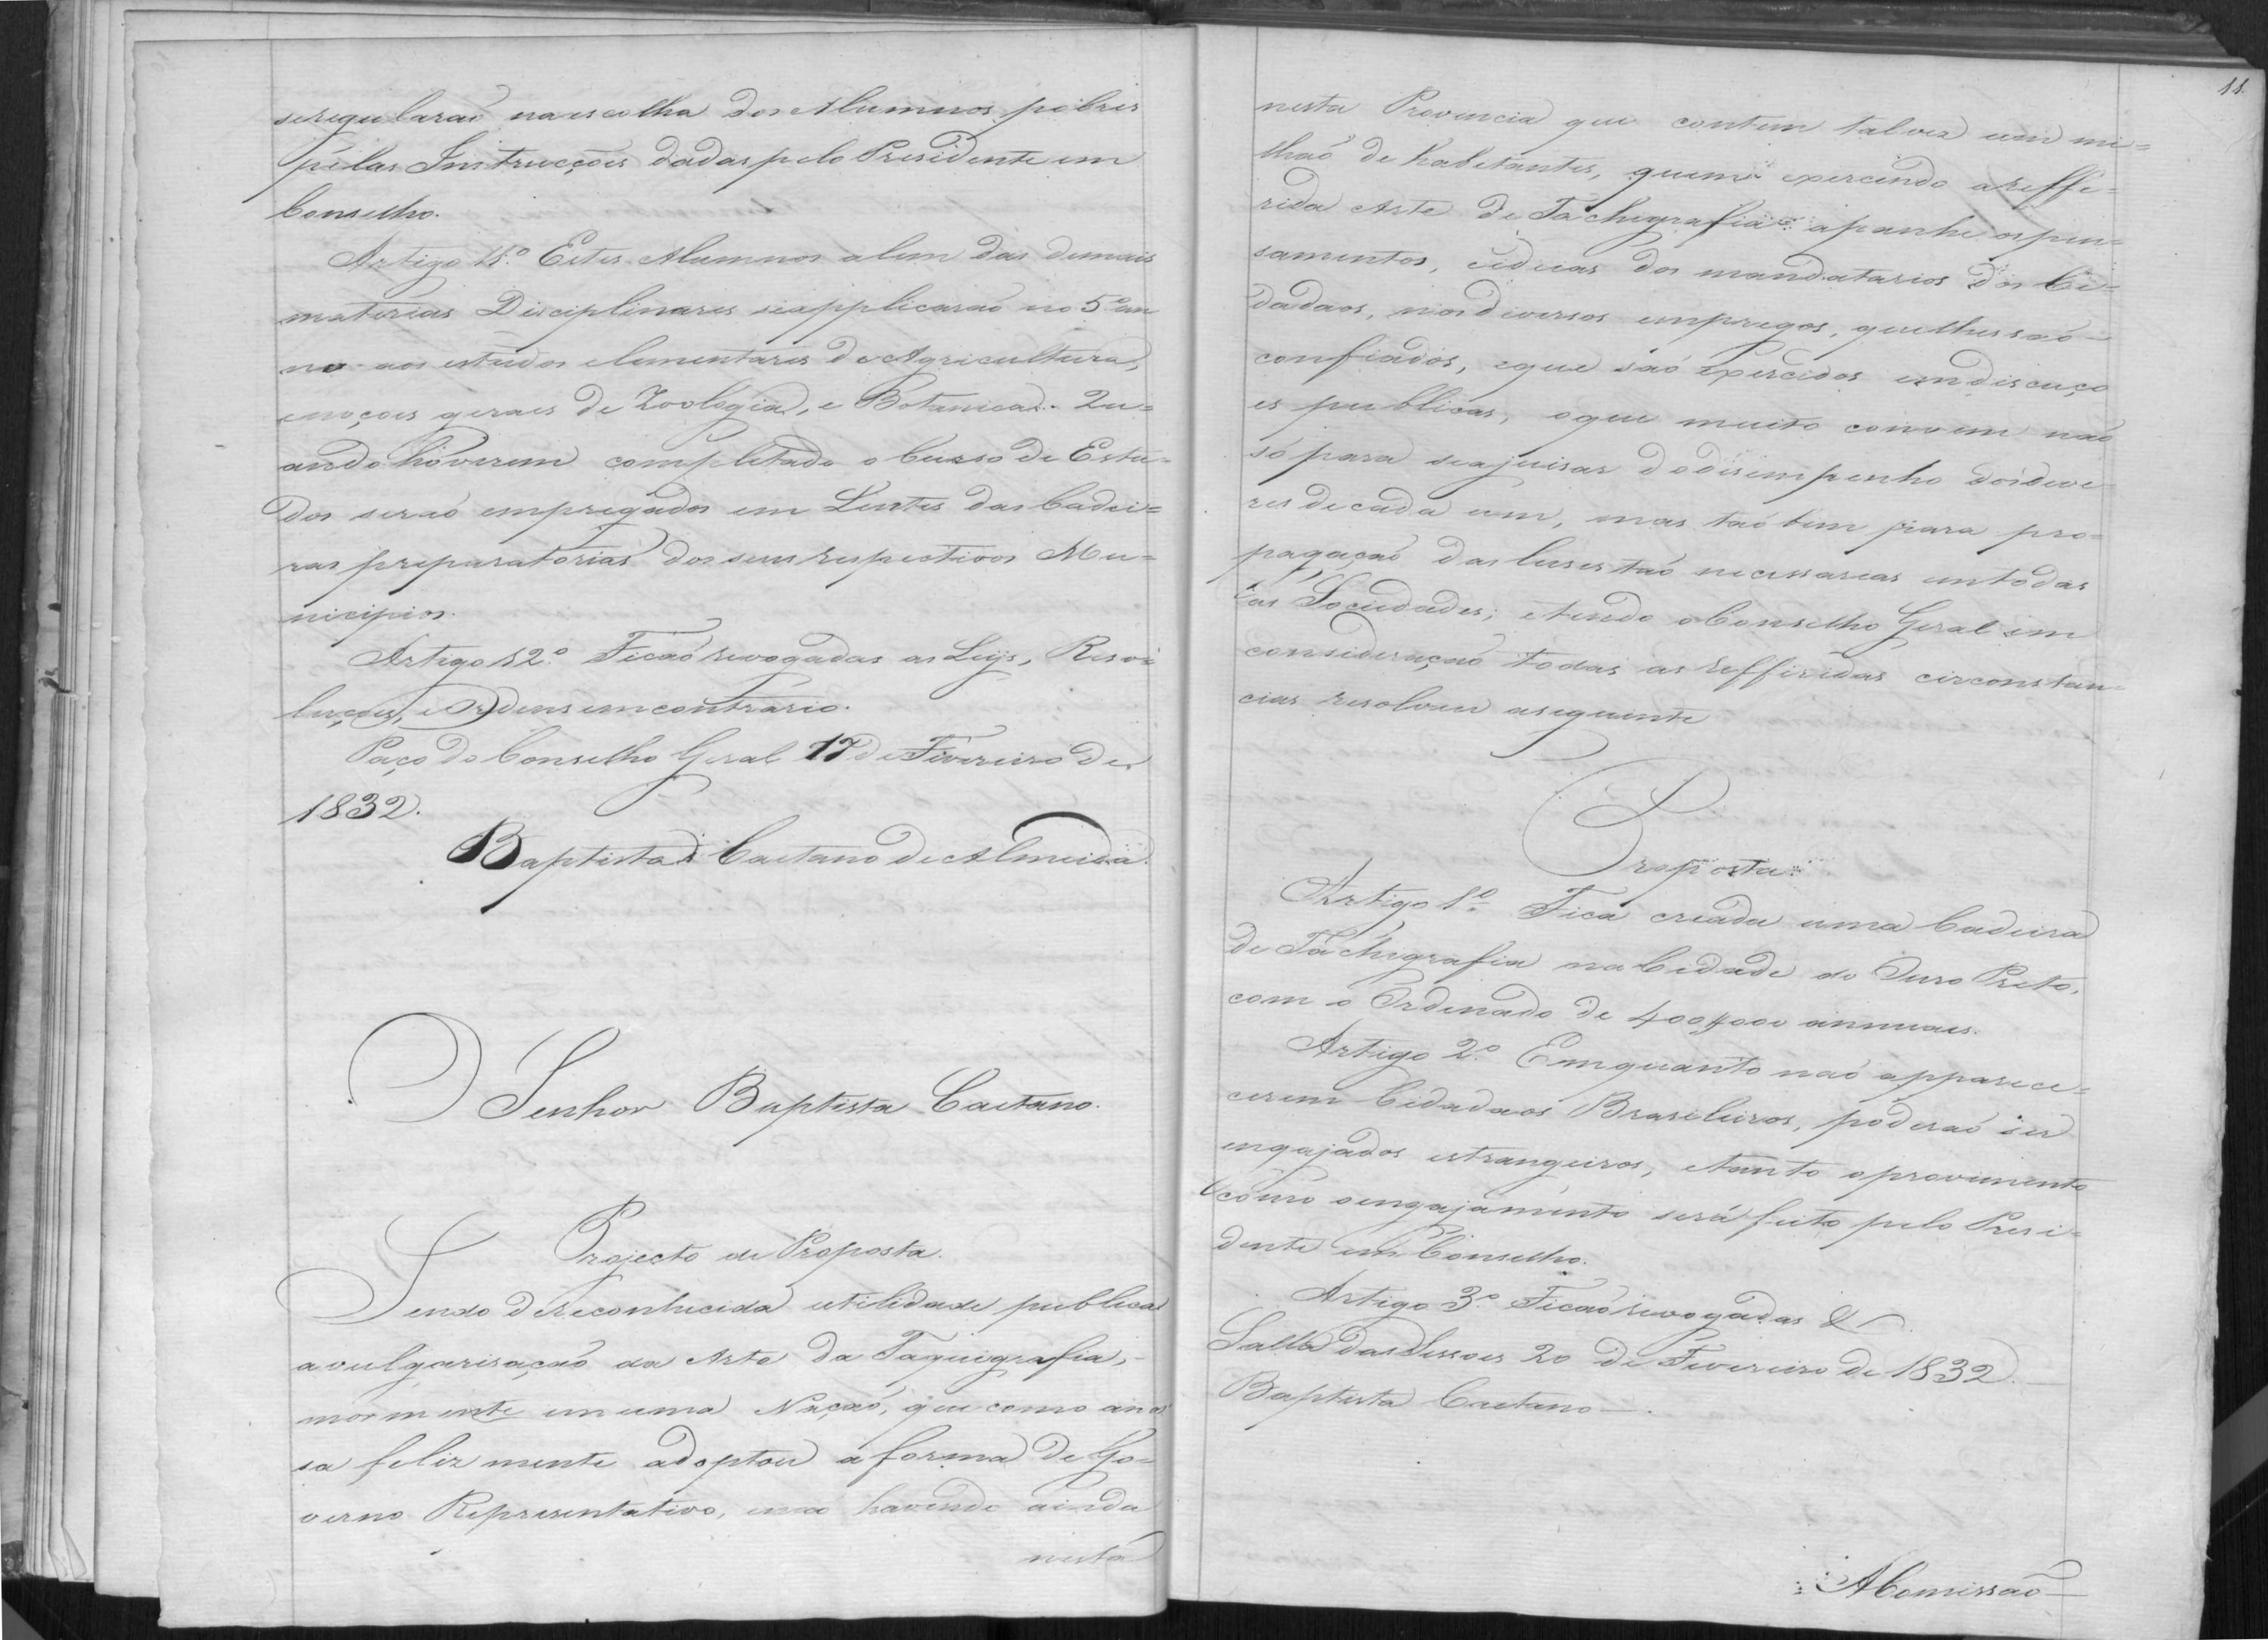 seregularaõ naescolha dos Alumnos pobres
pelas Instrucções dadas pelo Presidente em
Conselho.
Artigo 11.º Estes Alumnos alem das demais
materias Disciplinares seapplicaraõ no 5º an
no aos estudos elementares de Agricultura,
enoções geraes de Zoologia, e Botanica. Qu=
ando hoverem completado o Curso de Estu=
dos seraõ empregados em Lentes das Cadei=
ras preparatorias dos seus respectivos Mu=
nicipios.
Artigo 12.º Ficaõ revogadas as Leys, Reso=
luções, e Ordens emcontrario.
Paço do Conselho Geral 17 de Fevereiro de
1832.
Baptista Caetano de Almeida.
Senhor Baptista Caetano.
Projecto de Proposta.
Sendo dereconhecida utilidade publica
avulgarisaçaõ da Arte da Taquigrafia,
mormente emuma Naçaõ, que como anos
sa feliz mente adoptou a forma de Go=
verno Representativo, enaõ havendo ainda
nesta
11.
nesta Provincia que contem talvez um mi=
lhaõ de habetantes, quem exercendo areffe=
rida Arte de Tachigrafia apanhe ospen=
samentos, eideias dos mandatarios dos Ci=
dadaos, nos diversos empregos, quelhes saõ
confiados, eque saõ exercidos emdiscuço
es publicas, oque muito convem naõ
só para seajuisar dodesempenho dosdeve
res decada um, mas taõ bem para pro=
pagaçaõ das luses taõ necessarias emtodas
as Sociedades; etendo oConselho Geral em
consideraçaõ todas as reffiridas circonstan=
cias resolveu aseguente
Proposta.
Artigo 1º Fica creada uma Cadeira
de Tachigrafia na Cidade do Ouro Preto,
com o Ordenado de 400$000 annuaes.
Artigo 2.º Emquanto naõ apparece=
cerem Cidadaos Brasileiros, poderaõ ser
engajados estrangeiros, etanto oprovimento
como oengajamento será feito pelo Presi=
dente em Conselho.
Artigo 3.º Ficaõ revogadas &
Salla das Sessoes 20 de Fevereiro de 1832.
Baptista Caetano.
AComissaõ